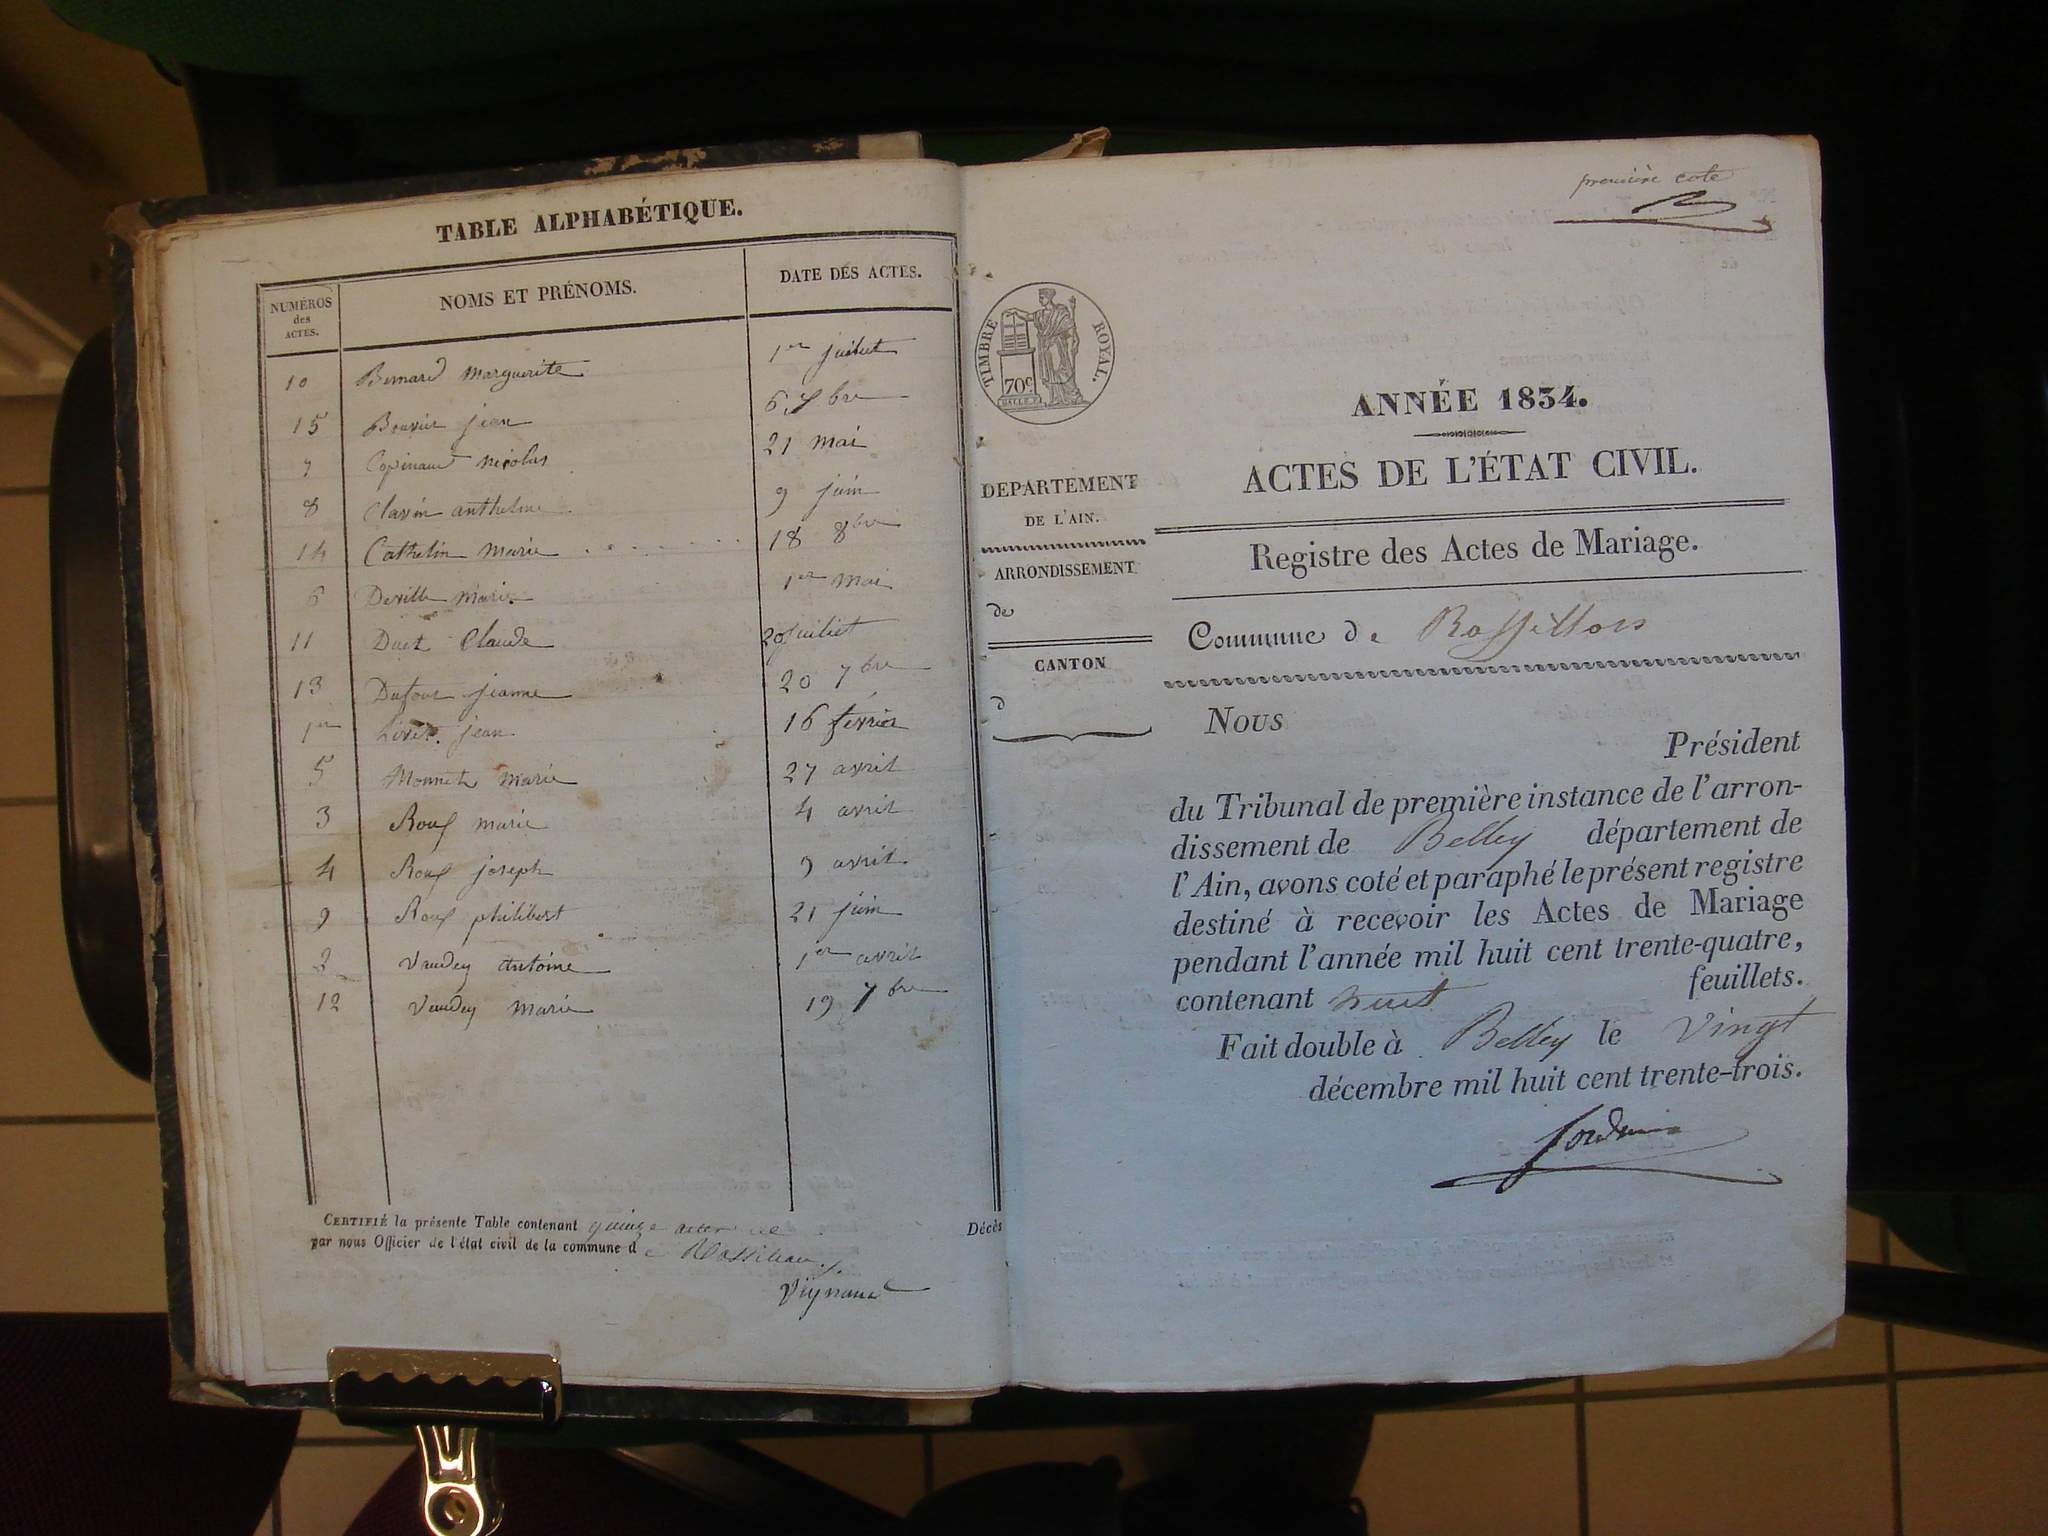 TABLE ALPHABÉTIQUE.
NUMÉROS des ACTES. NOMS ET PRÉNOMS. DATE DES ACTES.
10 Bernard marguerite 1er juillet
15 Bouvier jean 6 9bre
7 Copinaud nicolas 21 mai
8 Clavin anthelme 9 juin
14 Cathelin marie . . . . . . . 18 8bre
6 Deville marie 1er mai
11 Duet Claude 20 juillet
13 Dufour jeanne 20 7bre
1er Livet jean 16 février
5 Monnet marie 27 avril
3 Roux marie 4 avril
4 Roux joseph 9 avril
9 Roux philibert 21 juin
2 Vaudey antoine 1er avril
12 Vaudey marie 19 7bre
CERTIFIÉ la présente Table contenant quinze actes de Décès
par nous Officier de l'état civil de la commune de Rossillon
Vignaud
première cote
TIMBRE ROYAL.
70c
ANNÉE 1834.
ACTES DE L'ÉTAT CIVIL.
Registre des Actes de Mariage.
DEPARTEMENT
DE L'AIN.
ARRONDISSEMENT
de
CANTON
d
Commune de Rossillon
Nous
Président
du Tribunal de première instance de l'arron-
dissement de Belley département de
l'Ain, avons coté et paraphé le présent registre
destiné à recevoir les Actes de Mariage
pendant l'année mil huit cent trente-quatre,
contenant huit feuillets.
Fait double à Belley le vingt
décembre mil huit cent trente-trois.